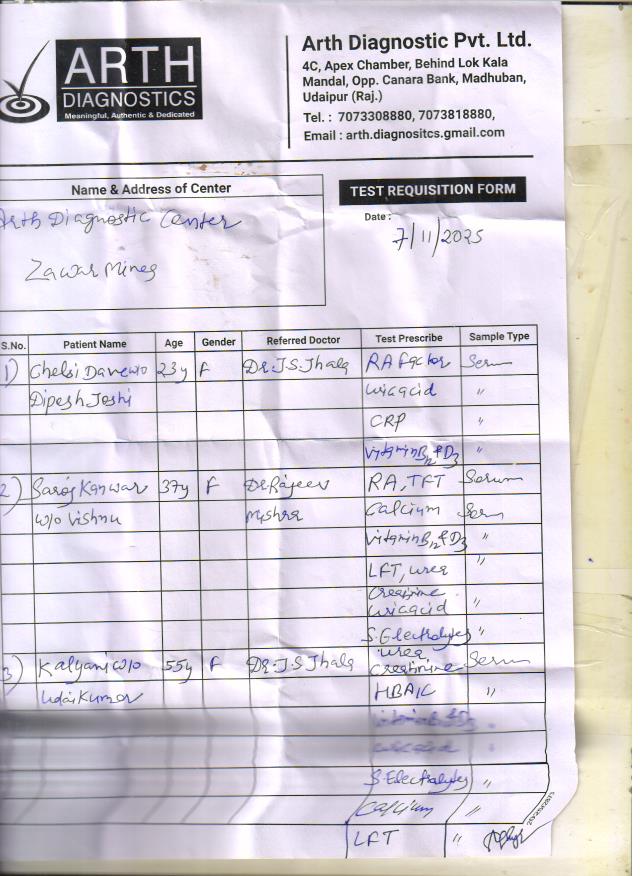 ARTH
DIAGNOSTICS
Meaningful, Authentic & Dedicated
Arth Diagnostic Pvt. Ltd.
4C, Apex Chamber, Behind Lok Kala
Mandal, Opp. Canara Bank, Madhuban,
Udaipur (Raj.)
Tel. : 7073308880, 7073818880,
Email : arth.diagnositcs.gmail.com
Name & Address of Center
TEST REQUISITION FORM
Arth Diagnostic Center
Zawar Mines
Date :
7/11/2025
S.No. Patient Name Age Gender Referred Doctor Test Prescribe Sample Type
1) Chelsi Dan w/o 23y F Dr. J.S. Jhala RA Factor Serum
Dipesh Joshi uric acid "
CRP "
Vitamin B12 & D3 "
2) Saroj Kanwar 37y F Dr Rajeev RA, TFT Serum
w/o Vishnu Mishra Calcium Serum
Vitamin B12 & D3 "
LFT, urea "
Creatinine
uric acid "
S. Electrolytes "
3) Kalyani w/o 55y F Dr. J.S Jhala urea Creatinine Serum
Udai Kumar HBA1C "
Vitamin B12 & D3 "
S. Electrolytes "
Calcium "
LFT "